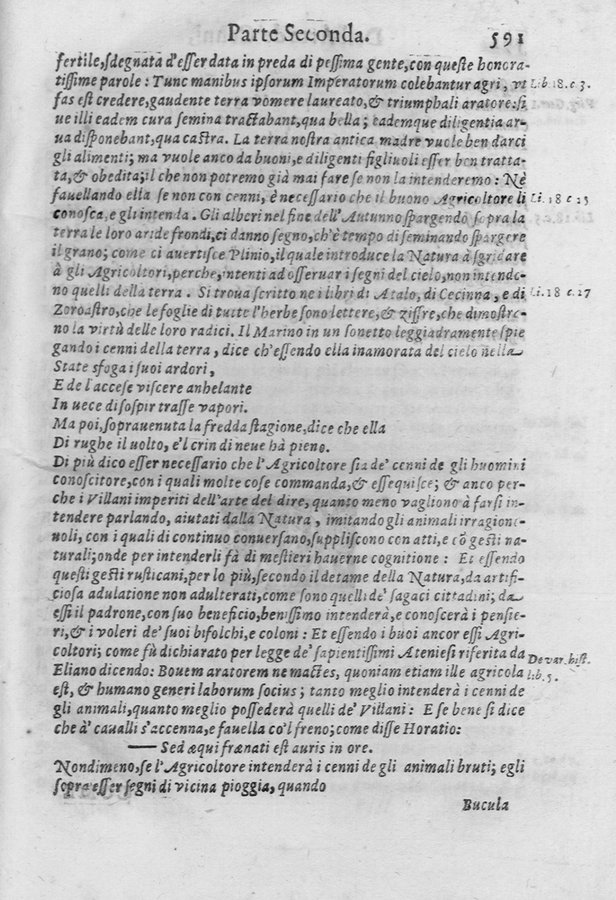 Parte Seconda. 591
fertile, sdegnata d'esser data in preda di pessima gente, con queste honora-
tissime parole: Tunc manibus ipsorum Imperatorum colebantur agri, vt Lib. 18. c. 3.
fas est credere, gaudente terra vomere laureato, & triumphali aratore: si
ue illi eadem cura semina tractabant, qua bella; eademque diligentia ar-
ua disponebant, qua castra. La terra nostra antica madre vuole ben darci
gli alimenti; ma vuole anco da buoni, e diligenti figliuoli esser ben tratta-
ta, & obedita; il che non potremo già mai fare se non la intenderemo: Nè
fauellando ella se non con cenni, è necessario che il buono Agricoltore li Li. 18 c. 25
conosca, e gli intenda. Gli alberi nel fine dell'Autunno spargendo sopra la
terra le loro aride frondi, ci danno segno, ch'è tempo di seminando spargere
il grano; come ci auertisce Plinio, il quale introduce la Natura à sgridare
à gli Agricoltori, perche, intenti ad osseruar i segni del cielo, non intendo-
no quelli della terra. Si troua scritto ne i libri di Atalo, di Cecinna, e di Li. 18 c. 27
Zoroastro, che le foglie di tutte l'herbe sono lettere, & ziffre, che dimostra-
no la virtù delle loro radici. Il Marino in un sonetto leggiadramente spie
gando i cenni della terra, dice ch'essendo ella inamorata del cielo nella
State sfoga i suoi ardori,
E de l'accese viscere anhelante
In uece di sospir trasse vapori.
Ma poi, soprauenuta la fredda stagione, dice che ella
Di rughe il uolto, e'l crin di neue hà pieno.
Di più dico esser necessario che l'Agricoltore sia de' cenni de gli huomini
conoscitore, con i quali molte cose commanda, & essequisce; & anco per-
che i Villani imperiti dell'arte del dire, quanto meno vagliono à farsi in-
tendere parlando, aiutati dalla Natura, imitando gli animali irragione-
noli, con i quali di continuo conuersano, suppliscono con atti, e cō gesti na-
turali; onde per intenderli fà di mestieri hauerne cognitione: Et essendo
questi gesti rusticani, per lo più, secondo il detame della Natura, da artifi-
ciosa adulatione non adulterati, come sono quelli de' sagaci cittadini; da
essi il padrone, con suo beneficio, benissimo intenderà, e conoscerà i pensie-
ri, & i voleri de' suoi bifolchi, e coloni: Et essendo i buoi ancor essi Agri-
coltori; come fù dichiarato per legge de' sapientissimi Ateniesi riferita da
Eliano dicendo: Bouem aratorem ne mactes, quoniam etiam ille agricola De var. hist.
est, & humano generi laborum socius; tanto meglio intenderà i cenni de lib. 5.
gli animali, quanto meglio possederà quelli de' Villani: E se bene si dice
che à' caualli s'accenna, e fauella co'l freno; come disse Horatio:
— Sed æqui frænati est auris in ore.
Nondimeno, se l'Agricoltore intenderà i cenni de gli animali bruti; egli
sopra esser segni di vicina pioggia, quando
Bucula